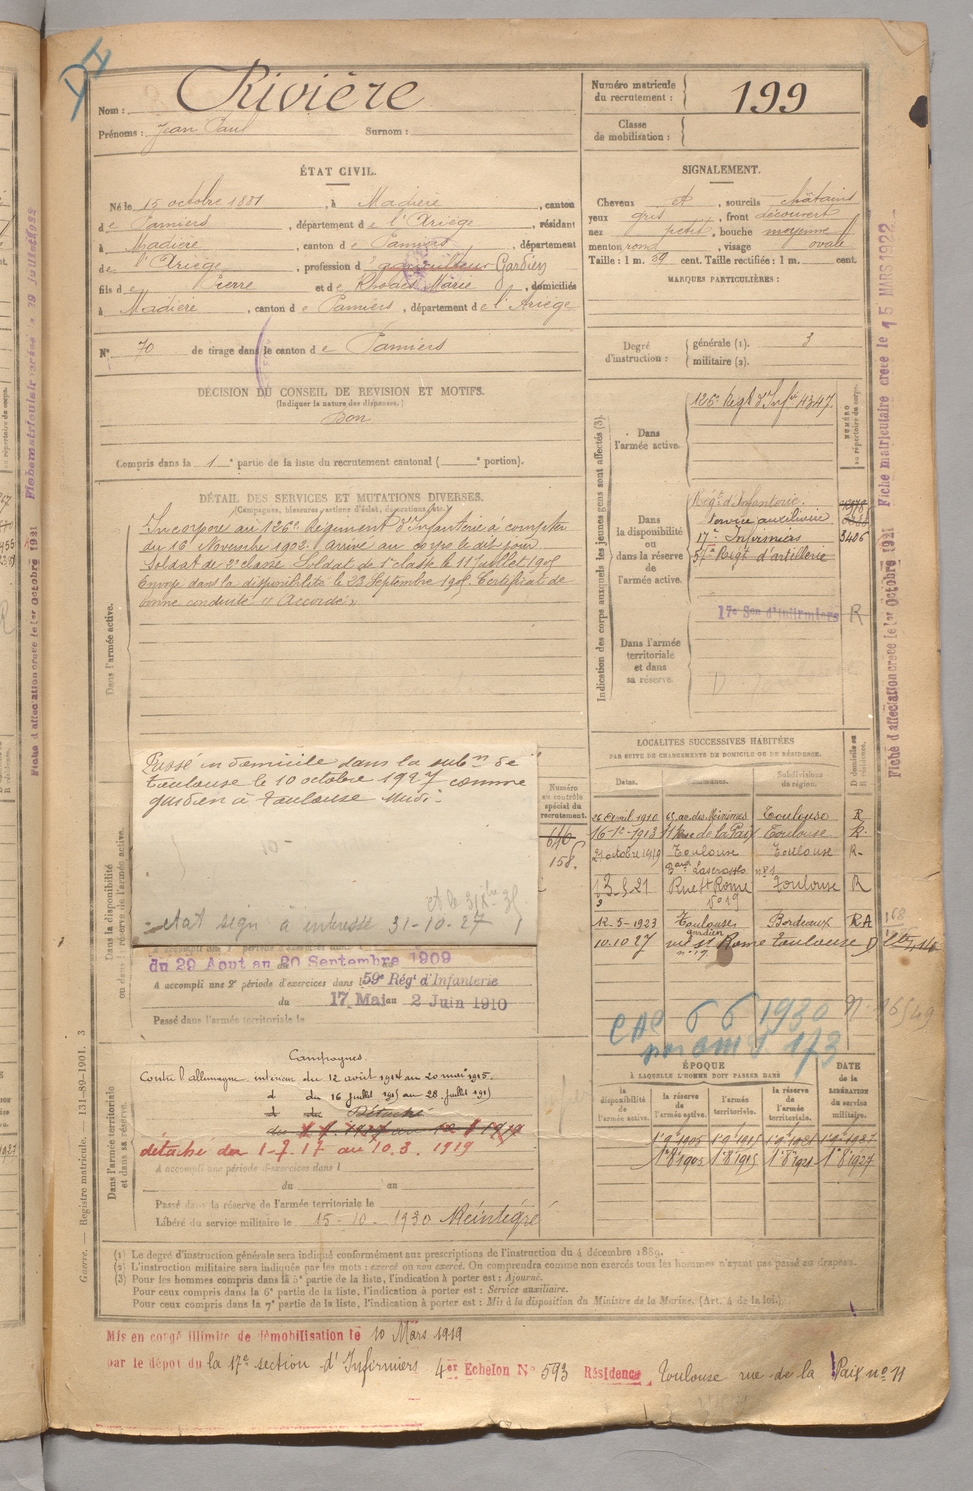 Nom : Rivière
Prénoms : Jean Paul Surnom :
Numéro matricule du recrutement : 199
Classe de mobilisation :
ÉTAT CIVIL.
Né le 15 octobre 1881, à Madière, canton
de Pamiers, département de l'Ariège, résidant
à Madière, canton de Pamiers, département
de l'Ariège, profession d' Gardien
fils de Pierre et de Marie, domiciliés
à Madière, canton de Pamiers, département de l'Ariège
N° 70 de tirage dans le canton de Pamiers
DÉCISION DU CONSEIL DE REVISION ET MOTIFS.
(Indiquer la nature des dispenses.)
Bon
Compris dans la 1e partie de la liste du recrutement cantonal ( e portion).
SIGNALEMENT.
Cheveux et, sourcils châtains
yeux gris, front découvert
nez petit, bouche moyenne
menton rond, visage ovale
Taille : 1 m. 59 cent. Taille rectifiée : 1 m. cent.
MARQUES PARTICULIÈRES :
Degré d'instruction : générale (1). 3
militaire (2).
DÉTAIL DES SERVICES ET MUTATIONS DIVERSES.
(Campagnes, blessures, actions d'éclat, décorations, etc.)
Dans l'armée active.
Incorporé au 126e Régiment d'Infanterie à compter
du 16 Novembre 1902. Arrivé au corps le dit jour
Soldat de 2e classe. Soldat de 1e classe le 11 Juillet 1905
Envoyé dans la disponibilité le 23 Septembre 1905. Certificat de
bonne conduite "Accordé"
Indication des corps auxquels les jeunes gens sont affectés (3).
NUMÉRO au répertoire du corps.
Dans l'armée active.
126e Regt d'Infie 4347
Dans la disponibilité ou dans la réserve de l'armée active.
Regt d'Infanterie
service auxiliaire
17e Infirmiers 3406
57e Regt d'artillerie
17e Son d'infirmiers R
Dans l'armée territoriale et dans sa réserve.
Dans la disponibilité ou dans la réserve de l'armée active.
Passé in domicile dans la subon de
Toulouse le 10 octobre 1927 comme
gardien à Toulouse Midi.
état sign à intéressé 31-10-27
du 29 Aout au 20 Septembre 1909
A accompli une 2e période d'exercices dans l 59e Régt d'Infanterie
du 17 Mai au 2 Juin 1910
Passé dans l'armée territoriale le
Numéro au contrôle spécial du recrutement.
640
158.
LOCALITÉS SUCCESSIVES HABITÉES
PAR SUITE DE CHANGEMENTS DE DOMICILE OU DE RÉSIDENCE.
Dates. Communes. Subdivisions de région. D domicile ou R résidence.
26 Avril 1910 65 av. des Minimes Toulouse R
16-1-1913 11 Rue de la Paix Toulouse R
21 octobre 1919 Toulouse Toulouse R
Rue St Rome Toulouse R
n° 19
12-5-1923 Toulouse Bordeaux RA
gardien
10.10 27 rue St Rome Toulouse D
n° 19
6 6 1930
173
Dans l'armée territoriale et dans sa réserve.
Campagnes.
Contre l'allemagne. intérieur du 12 août 1914 au 20 mai 1915.
d du 16 juillet 1915 au 28 juillet 1915
d du Détaché
détaché du 1-7-17 au 10.3.1919
A accompli une période d'exercices dans l
du au
Passé dans la réserve de l'armée territoriale le
Libéré du service militaire le 15-10-1930 Réintégré
ÉPOQUE
À LAQUELLE L'HOMME DOIT PASSER DANS
la disponibilité de l'armée active. la réserve de l'armée active. l'armée territoriale. la réserve de l'armée territoriale.
DATE de la LIBÉRATION du service militaire.
1e 9 1905 1e 9 1915 1e 9 1921 1e 9 1927
1e 8 1905 1e 8 1915 1e 8 1921 1e 8 1927
(1) Le degré d'instruction générale sera indiqué conformément aux prescriptions de l'instruction du 4 décembre 1889.
(2) L'instruction militaire sera indiquée par les mots : exercé ou non exercé. On comprendra comme non exercés tous les hommes n'ayant pas passé au drapeau.
(3) Pour les hommes compris dans la 5e partie de la liste, l'indication à porter est : Ajourné.
Pour ceux compris dans la 6e partie de la liste, l'indication à porter est : Service auxiliaire.
Pour ceux compris dans la 7e partie de la liste, l'indication à porter est : Mis à la disposition du Ministre de la Marine. (Art. 4 de la loi.)
Mis en congé illimité de démobilisation le 10 Mars 1919
par le dépôt du la 17e section d'Infirmiers 4er Echelon N° 593 Résidence Toulouse rue de la Paix no 11
Guerre. — Registre matricule. 131-89-1901. 3
Fiche matriculaire créée le 15 MARS 1922
Fiche d'affectation créée le 1er Octobre 1921